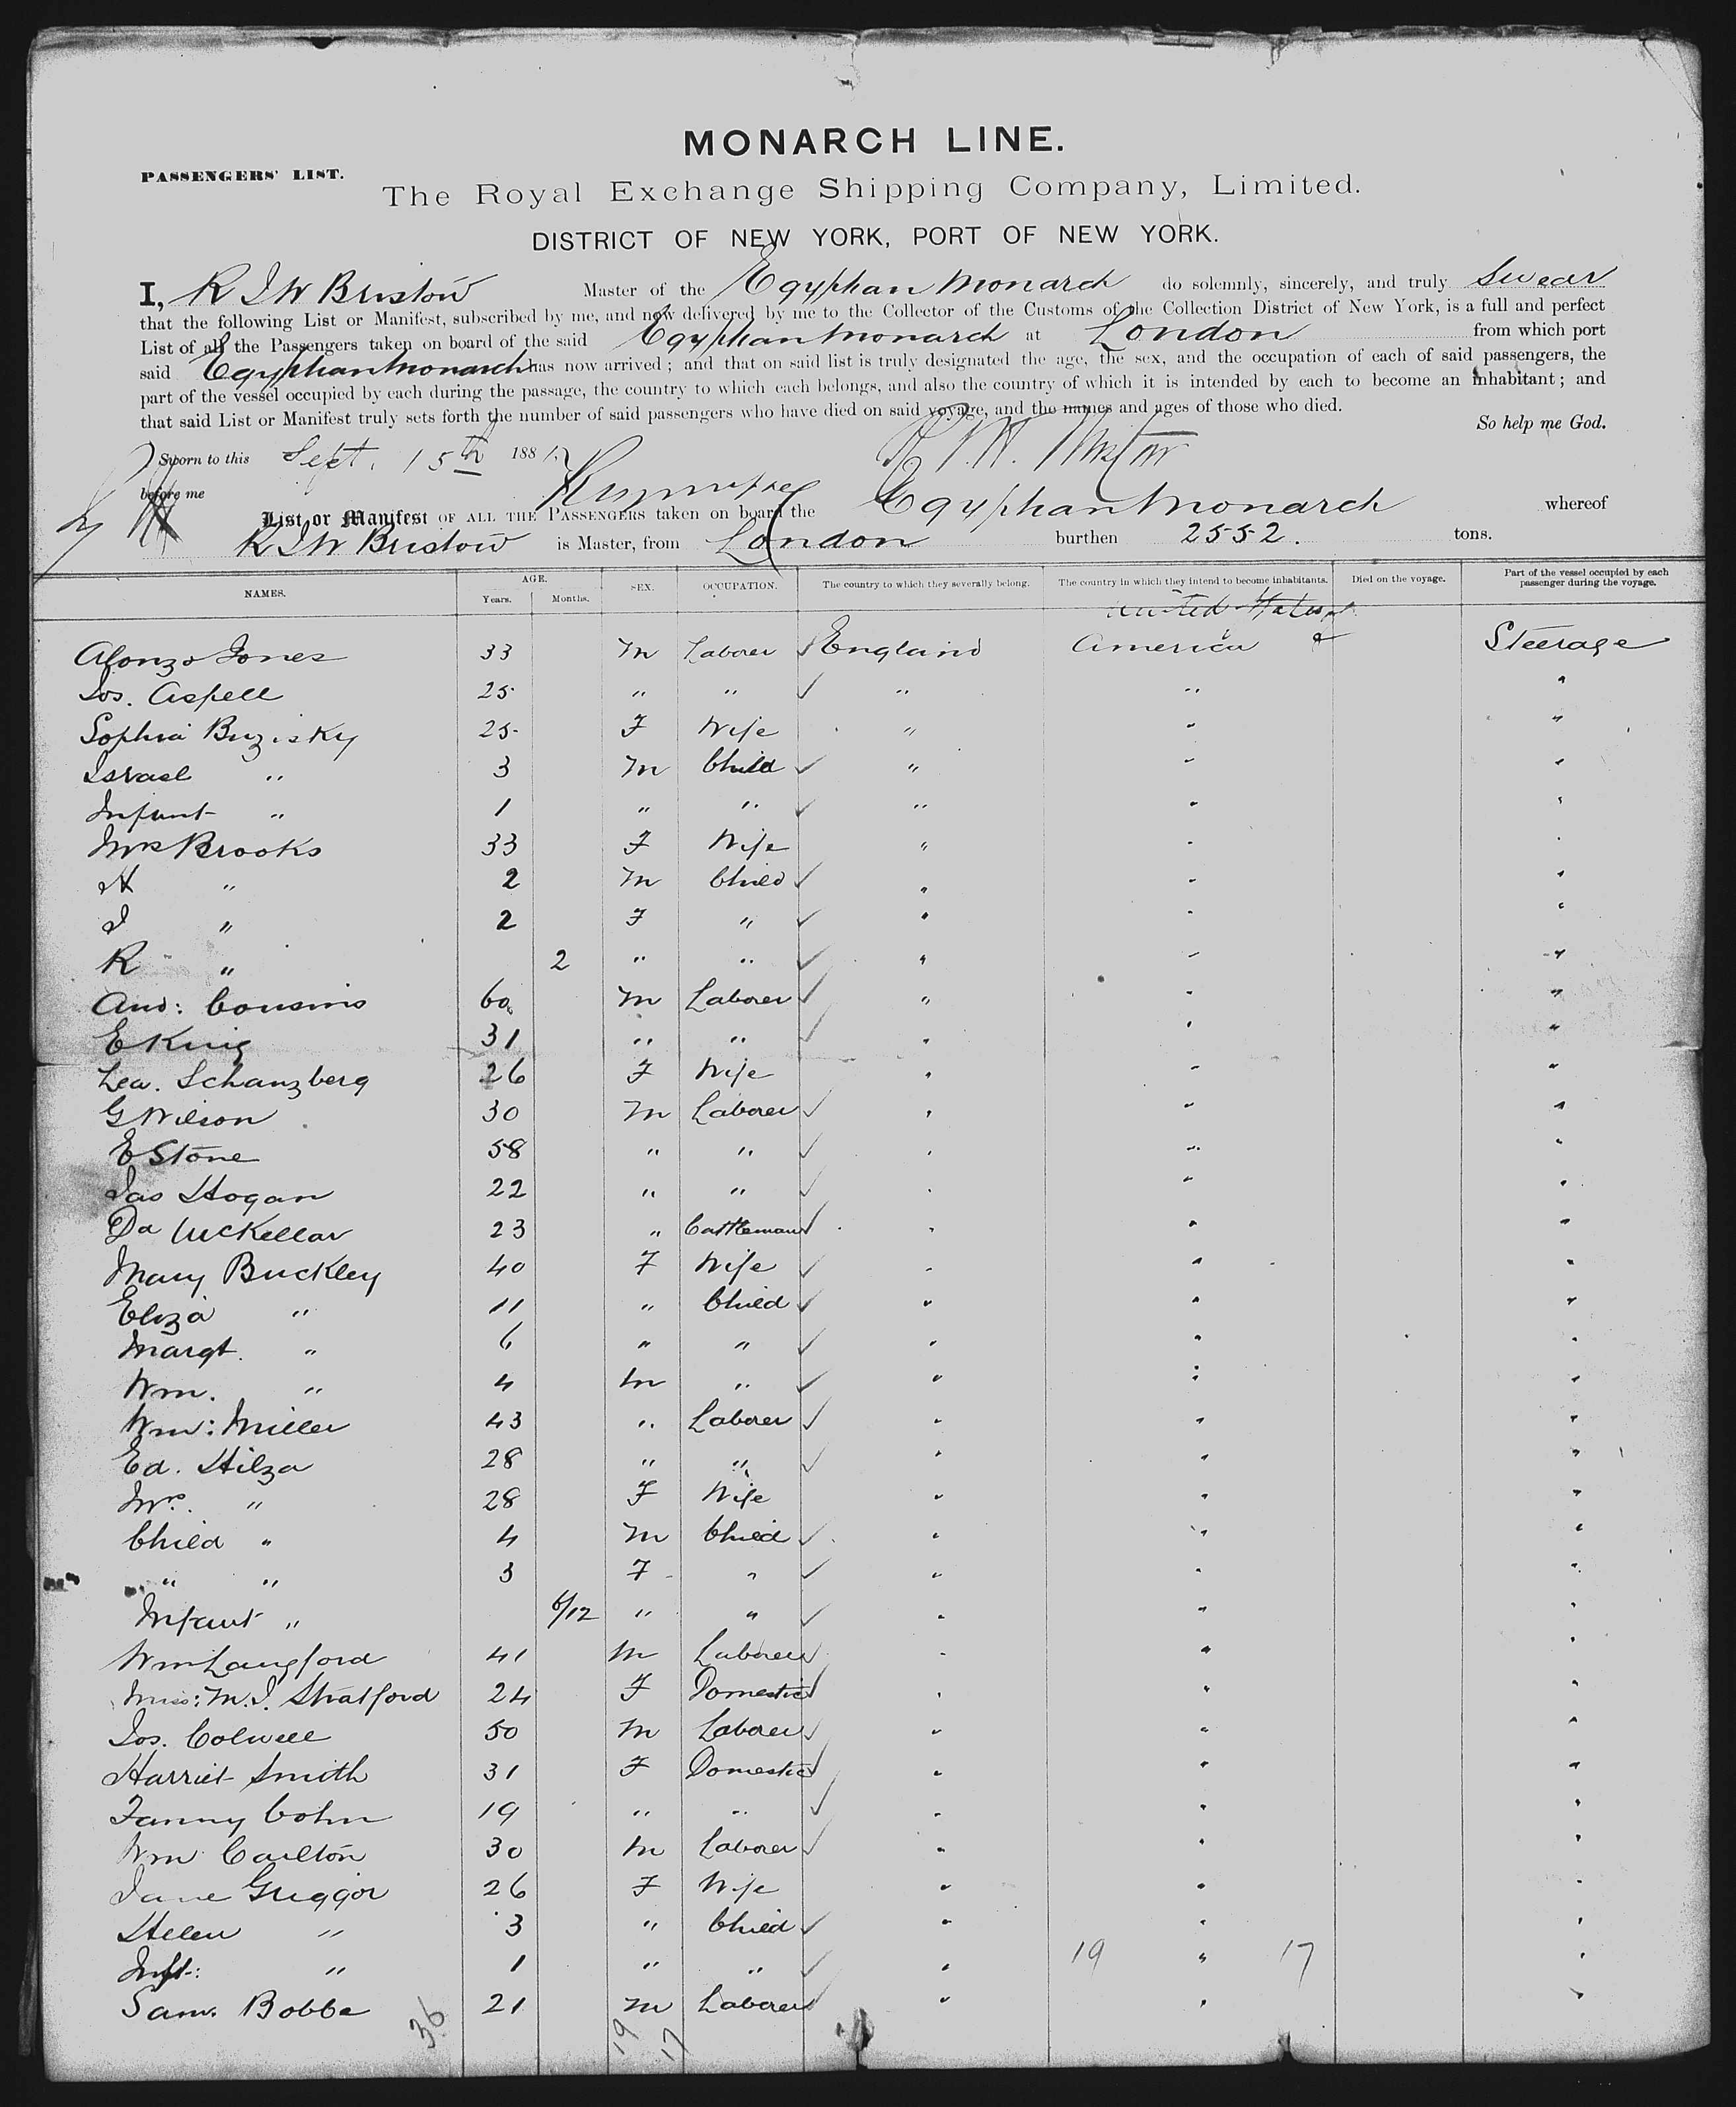 MONARCH LINE.
PASSENGERS' LIST.
The Royal Exchange Shipping Company, Limited.
DISTRICT OF NEW YORK, PORT OF NEW YORK.
I, R J W Bristow Master of the Egyptian Monarch do solemnly, sincerely, and truly Swear
that the following List or Manifest, subscribed by me, and now delivered by me to the Collector of the Customs of the Collection District of New York, is a full and perfect
List of all the Passengers taken on board of the said Egyptian Monarch at London from which port
said Egyptian Monarch has now arrived; and that on said list is truly designated the age, the sex, and the occupation of each of said passengers, the
part of the vessel occupied by each during the passage, the country to which each belongs, and also the country of which it is intended by each to become an inhabitant; and
that said List or Manifest truly sets forth the number of said passengers who have died on said voyage, and the names and ages of those who died.
So help me God.
Sworn to this Sept. 15th 1881
before me
List or Manifest OF ALL THE PASSENGERS taken on board the Egyptian Monarch whereof
R J W Bristow is Master, from London burthen 2552. tons.
NAMES. AGE. Years. Months. SEX. OCCUPATION. The country to which they severally belong. The country in which they intend to become inhabitants. Died on the voyage. Part of the vessel occupied by each passenger during the voyage.
United States of
Alonzo Jones 33 M Laborer England America Steerage
Jos. Aspell 25 " " " " "
Sophia Buzisky 25 F Wife " " "
Israel " 3 M Child " " "
Infant " 1 " " " " "
Mrs Brooks 33 F Wife " " "
A " 2 M Child " " "
J " 2 F " " " "
R " 2 " " " " "
And: Cousins 60 M Laborer " " "
E King 31 " " " " "
Lea. Schanzberg 26 F Wife " " "
G Wilson 30 M Laborer " " "
E Stone 58 " " " " "
Jas Hogan 22 " " " " "
Da McKellar 23 " Cattleman " " "
Mary Buckley 40 F Wife " " "
Eliza " 11 " Child " " "
Margt. " 6 " " " " "
Wm. " 4 M " " " "
Wm: Miller 43 " Laborer " " "
Ed. Hilza 28 " " " " "
Mrs. " 28 F Wife " " "
Child " 4 M Child " " "
" " 3 F " " " "
Infant " 6/12 " " " " "
Wm Langford 41 M Laborer " " "
Miss: M. J. Stratford 24 F Domestic " " "
Jos. Colwell 50 M Laborer " " "
Harriet Smith 31 F Domestic " " "
Fanny Cohn 19 " " " " "
Wm Carlton 30 M Laborer " " "
Jane Griggor 26 F Wife " " "
Helen " 3 " Child " " "
Inft: " 1 " " " 19 " 17 "
Sam. Bobbe 21 M Laborer " " "
36 19 17